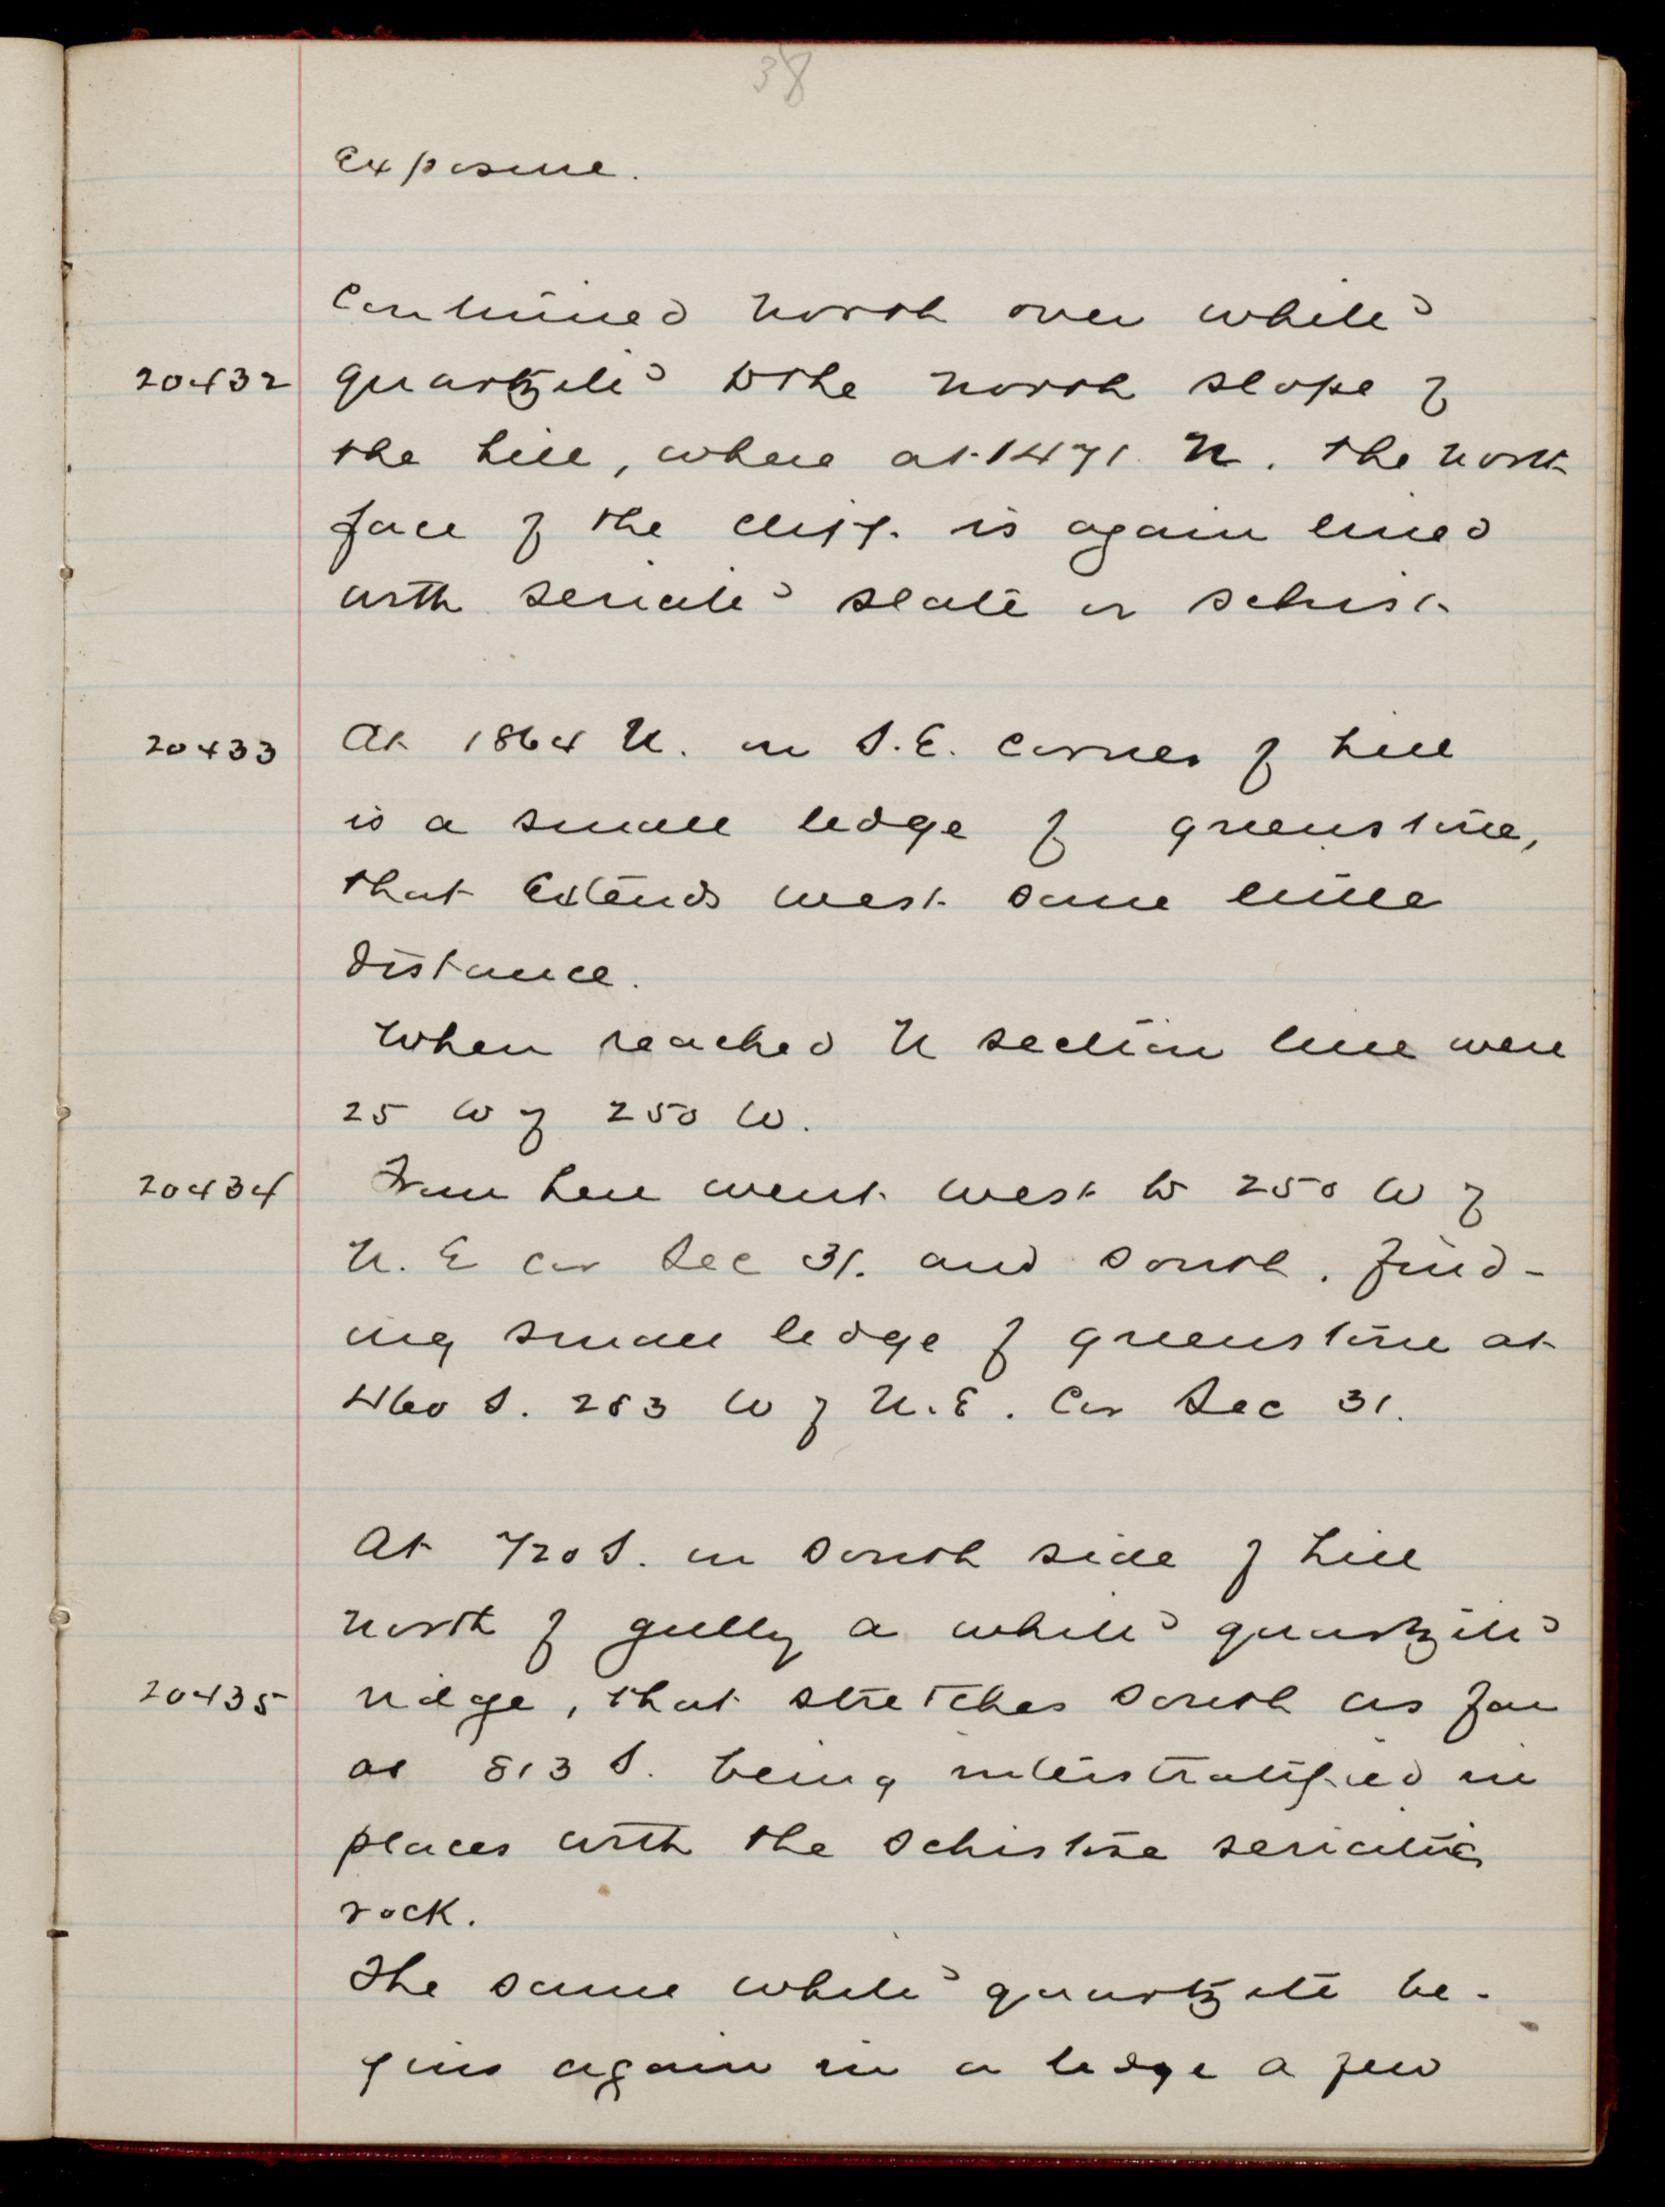 38
Exposure.
Continued north over white
20432 quartzite to the north slope of
the hill, where at 1471 N. the north
face of the cliff is again lined
with sericite slate or schist
20433 At 1864 N. on S.E. corner of hill
is a small ledge of greenstone,
that extends west some little
distance.
When reached N section line were
25 W of 250 W.
20434 From here went west to 250 W of
N. E Cor Sec 31. and south. find-
ing small ledge of greenstone at
460 S. 283 W of N.E. Cor Sec 31.
At 720 S. on south side of hill
north of gully a white quartzite
20435 ridge, that stretches south as far
as 813 S. being interstratified in
places with the schistose sericitic
rock.
The same white quartzite be-
gins again in a ledge a few